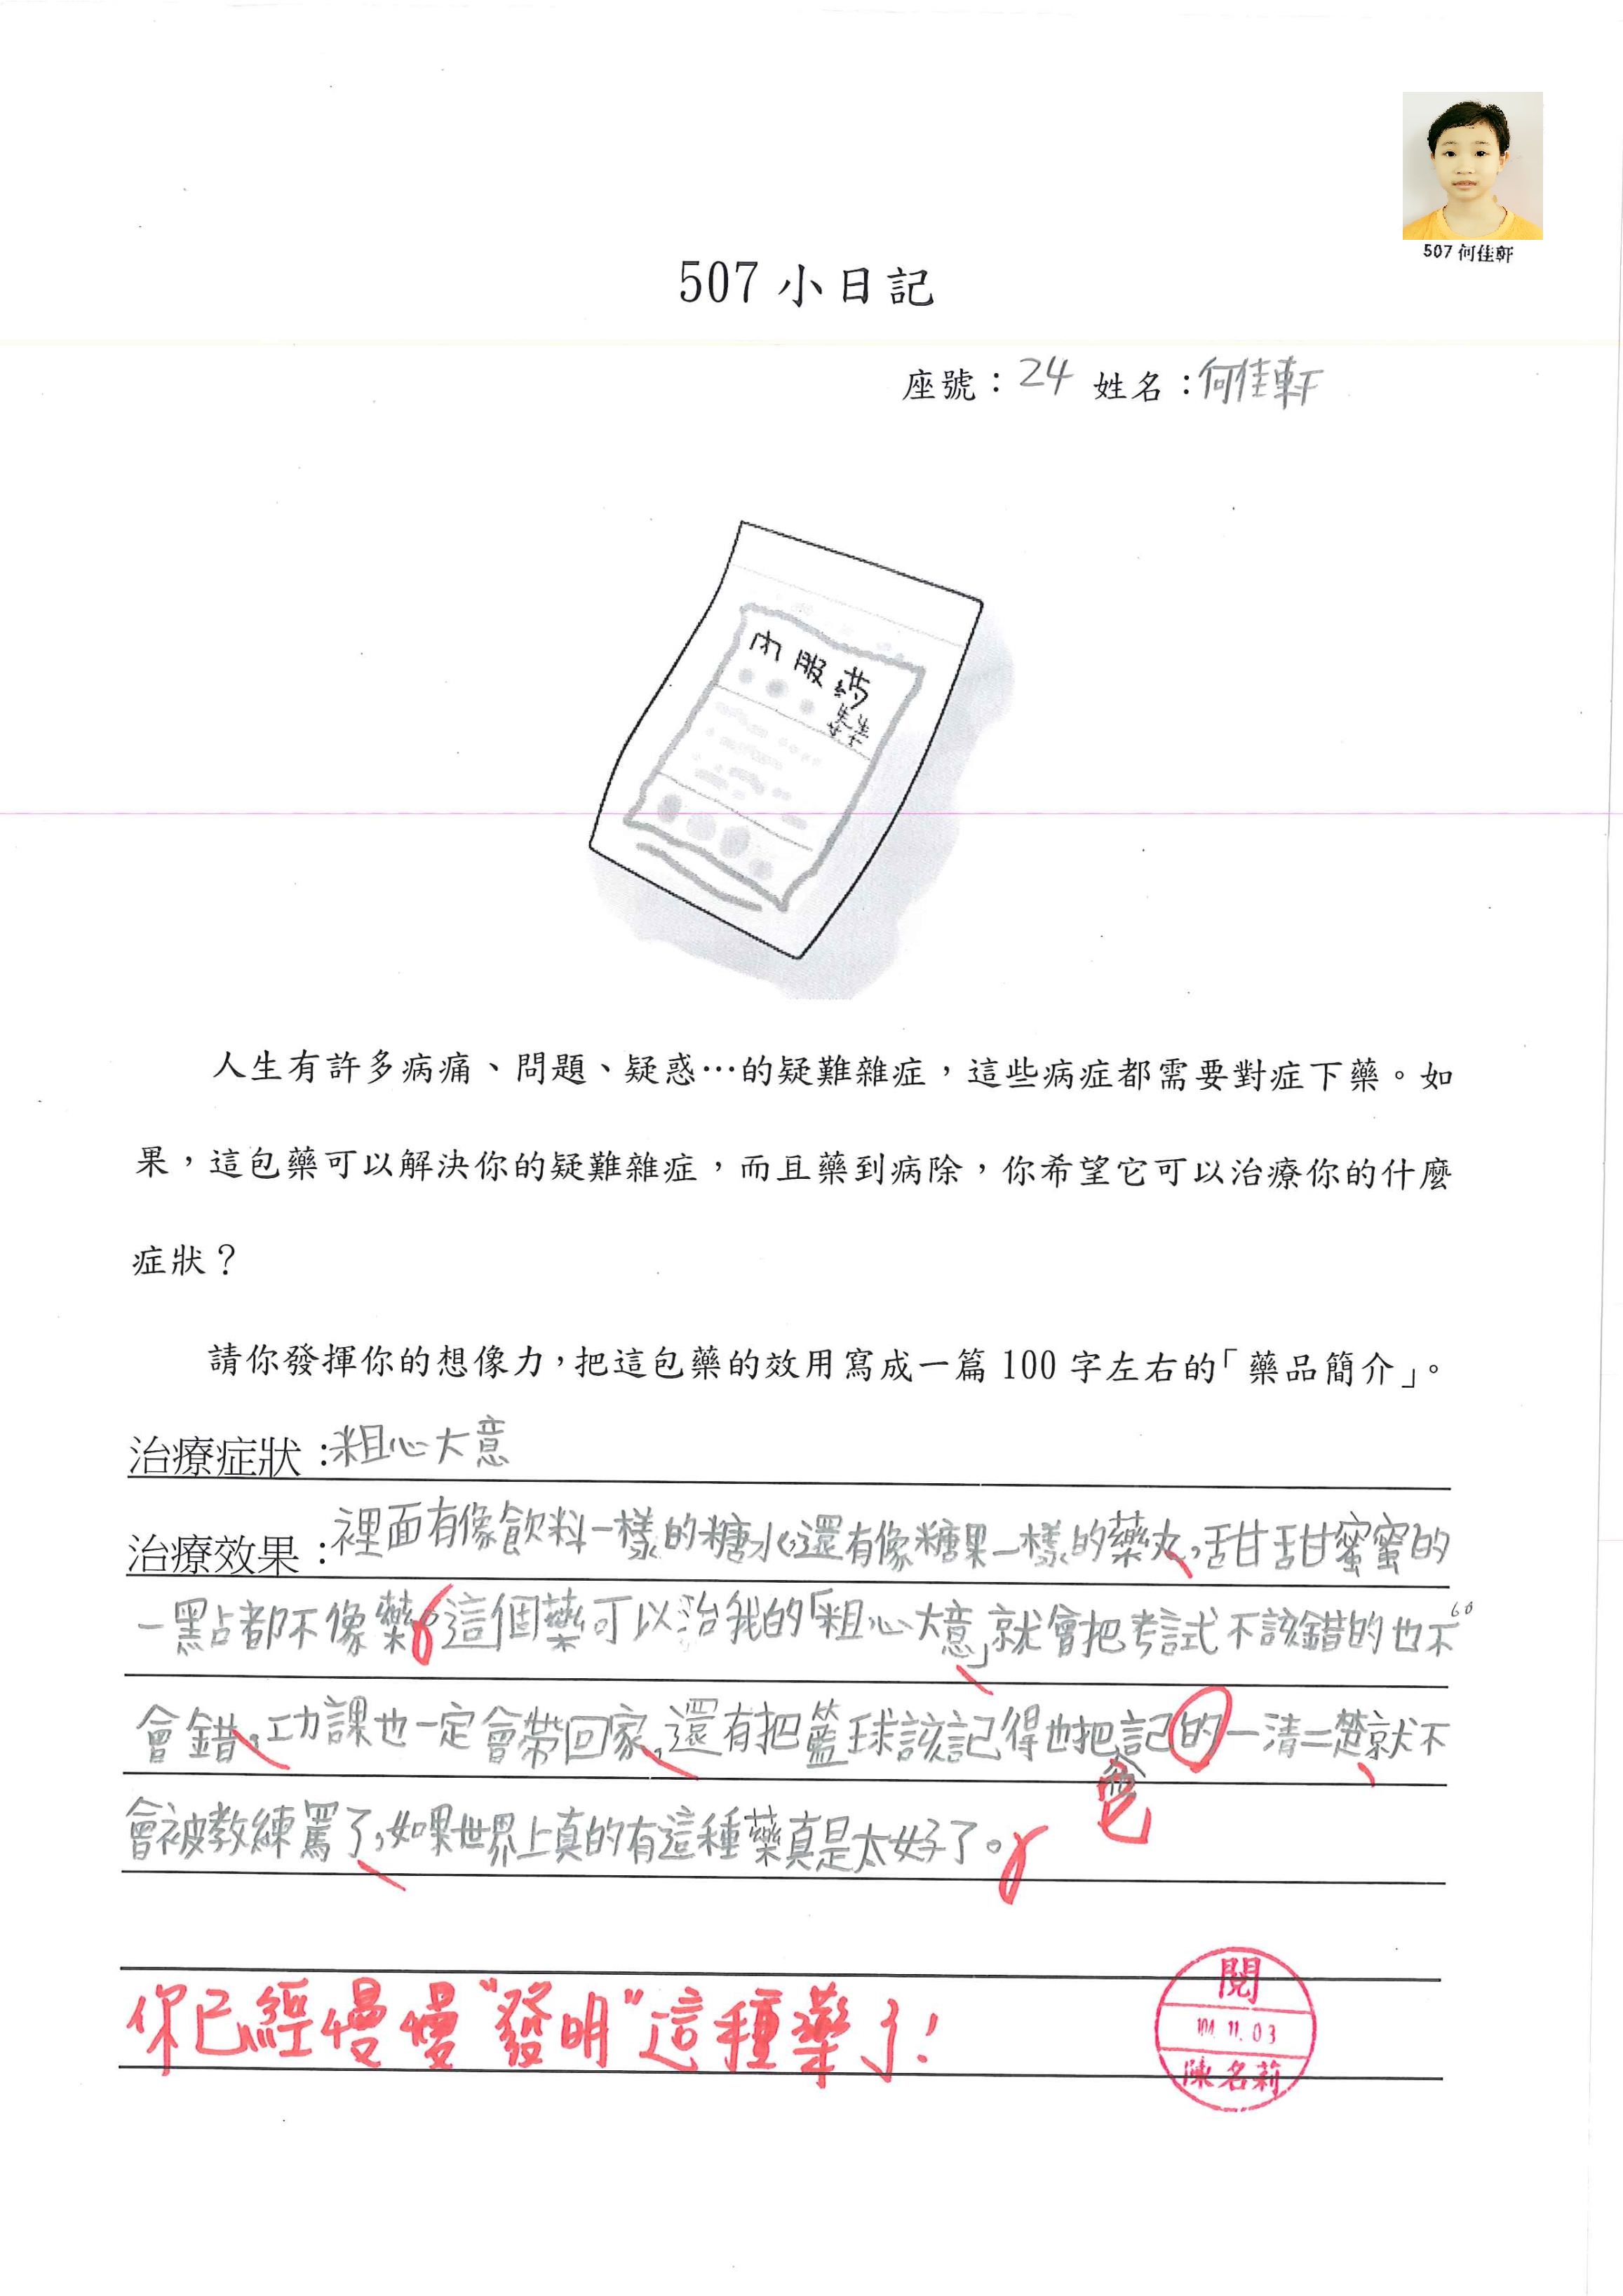 507 何佳軒
507 小日記
座號：24 姓名：何佳軒
內服藥
人生有許多病痛、問題、疑惑…的疑難雜症，這些病症都需要對症下藥。如
果，這包藥可以解決你的疑難雜症，而且藥到病除，你希望它可以治療你的什麼
症狀？
請你發揮你的想像力，把這包藥的效用寫成一篇 100 字左右的「藥品簡介」。
治療症狀：粗心大意
治療效果：裡面有像飲料一樣的糖水，還有像糖果一樣的藥丸，甜甜蜜蜜的
一點都不像藥。這個藥可以治我的「粗心大意」就會把考試不該錯的也不
60
會錯，功課也一定會帶回家，還有把籃球該記得也把記的一清二楚就不
會被教練罵了，如果世界上真的有這種藥真是太好了。
你已經慢慢"發明"這種藥了！
閱
104.11.03
陳名莉